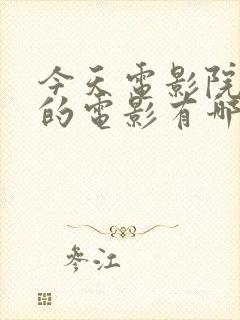 今天電影院
的電影有哪
參江